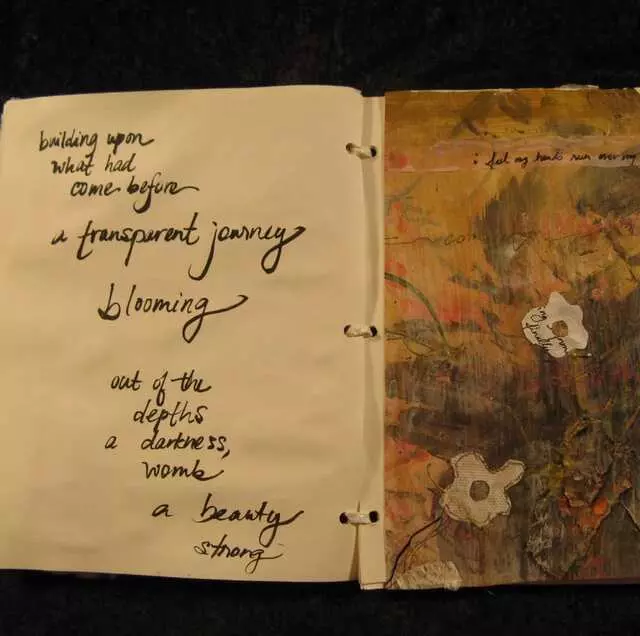 building upon
what had
come before
a transparent journey
blooming
out of the
depths
a darkness,
womb
a beauty
strong
i feel my hands run over my
finally